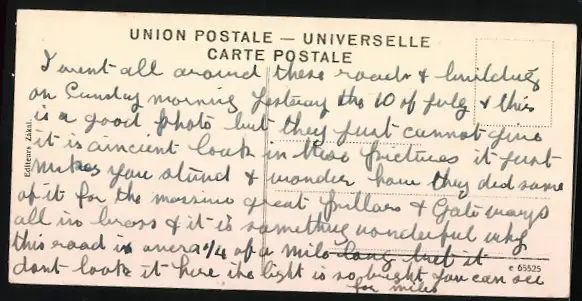 UNION POSTALE — UNIVERSELLE
CARTE POSTALE
I went all around these roads & buildings
on Sunday morning yesterday the 10 of July & this
is a good photo but they just cannot give
it is aincient look in these pictures it just
makes you stand & wonder how they did some
of it for the massive great pillars & Gate ways
all in brass & it is something wonderful why
this road is over a 1/4 of a mile long but it
dont look it here the light is so bright you can see
for miles
Editeurs Zakai.
c 65525